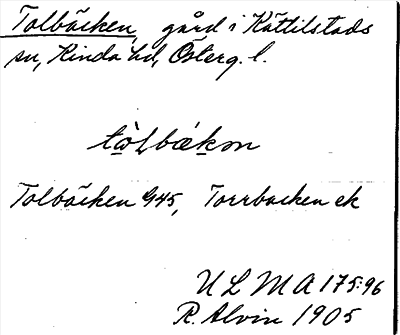 Tolbäcken, gård i Kättilstads
sn, Kinda hd, Österg. l.
tòlbækon
Tolbäcken G45, Torrbacken ek
ULMA 175:96
R. Alvin 1905